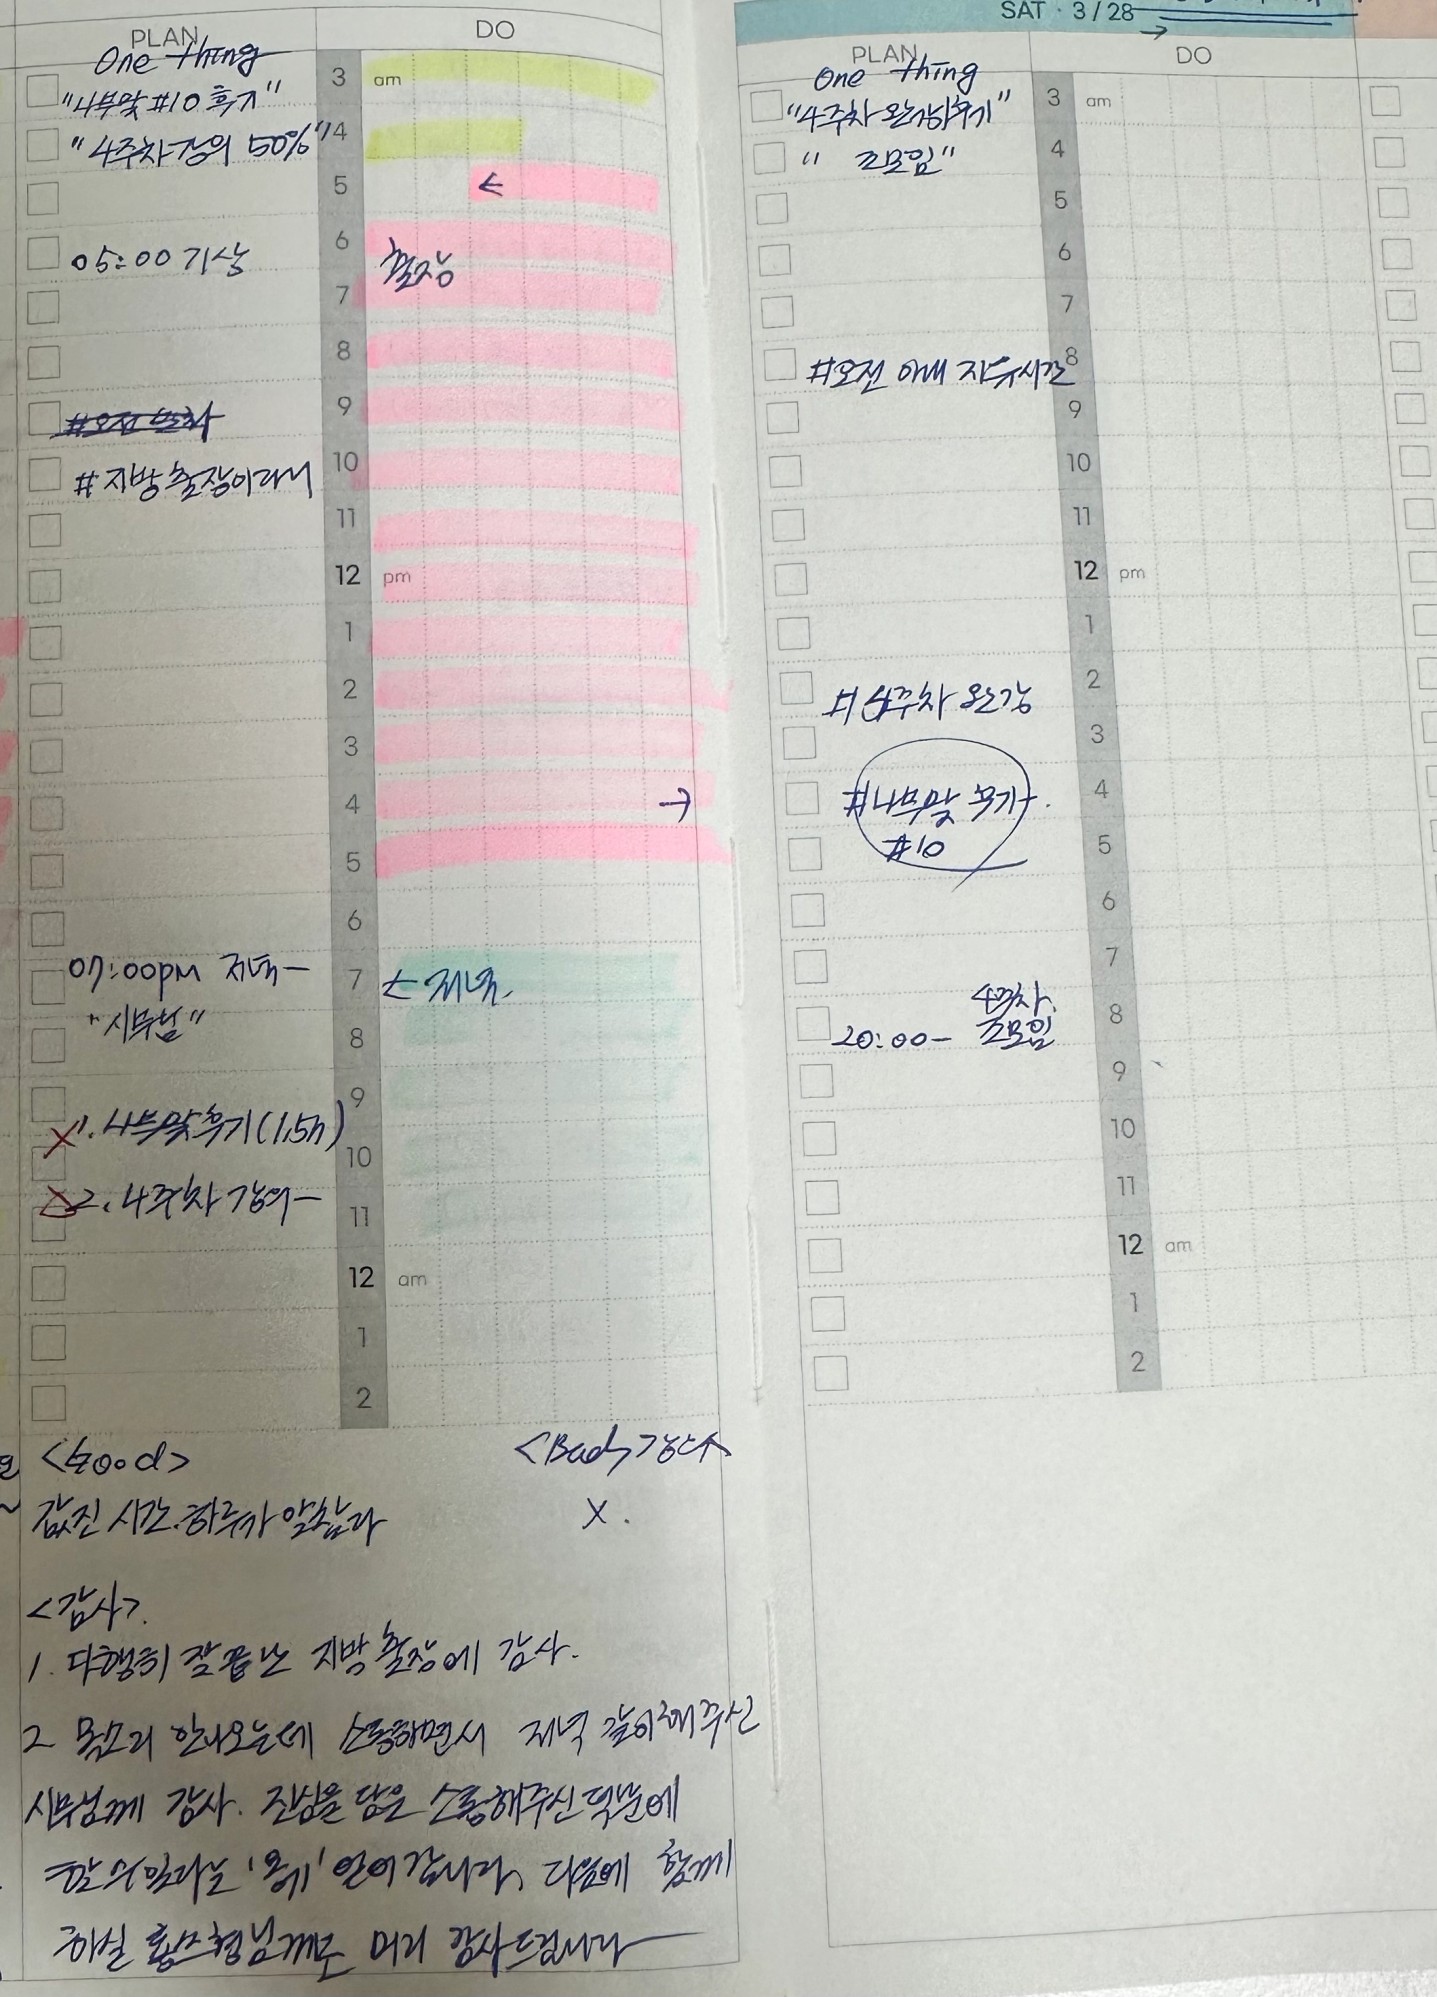 PLAN
DO
One thing
"나부맞 #10 후기"
"4주차 강의 50%"
3 am
4
5 ←
05:00 기상
6 출장
7
8
#오전 반차
9
#지방 출장이라니
10
11
12 pm
1
2
3
4 →
5
6
07:00pm 저녁-
7 ← 저녁.
"시무님"
8
9
X 1. 나부맞 후기 (1.5h)
10
△ 2. 4주차 강의-
11
12 am
1
2
<Good>
값진 시간. 하루가 알차다
<Bad>
X.
<감사>.
1. 다행히 잘 끝난 지방 출장에 감사.
2 목소리 안나오는데 소통하면서 저녁 같이 해주신
시무님께 감사. 진심을 담은 소통해주신 덕분에
할 수 있다는 '용기' 얻어갑니다. 다음에 함께
하실 형님께도 미리 감사드립니다
SAT · 3/28
→
PLAN
DO
One thing
"4주차 완강후기"
" 조모임"
3 am
4
5
6
7
8
#오전 아내 자유시간
9
10
11
12 pm
1
2
#4주차 완강
3
4
#나부맞 후기-.
#10
5
6
7
4주차.
8
20:00- 조모임
9
10
11
12 am
1
2